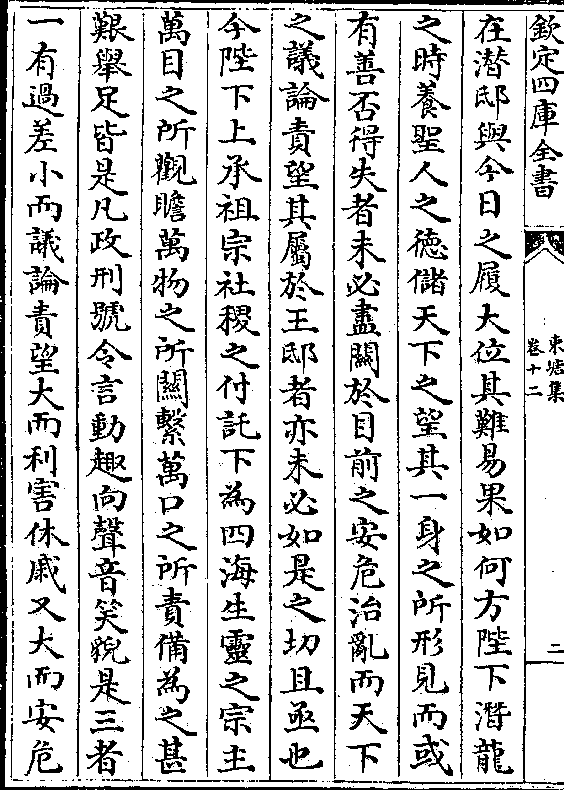 欽定四庫全書
東塘集
卷十二
二
在潜邸與今日之履大位其難易果如何方陛下潛龍
之時養聖人之德儲天下之望其一身之所形見而或
有善否得失者未必盡關於目前之安危治亂而天下
之議論責望其屬於王邸者亦未必如是之切且亟也
今陛下上承祖宗社稷之付託下為四海生靈之宗主
萬目之所觀瞻萬物之所關繫萬口之所責備為之甚
艱舉足皆是凡政刑號令言動趣向聲音笑貌是三者
一有過差小而議論責望大而利害休戚又大而安危